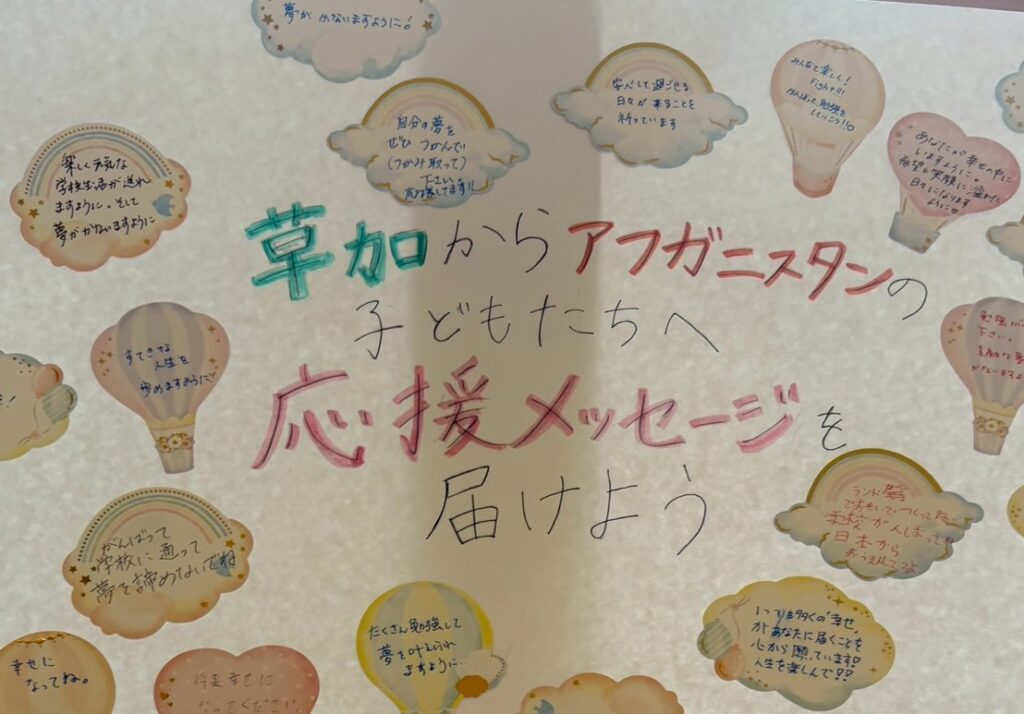 夢が かないますように!
安心して過ごせる
日々が来ることを
祈っています
みんなと楽しく!
Fight!!!
がんばって勉強を
していこう!!
自分の夢を
ぜひ つかんで
(つかみ取って)
下さい。
応援してます!!
あなたが幸せの中に
いますように。
希望と笑顔に溢れた
日々になります
ように
楽しく元気な
学校生活が送れ
ますように。そして
夢がかないますように
草加からアフガニスタンの
子どもたちへ
応援メッセージを
届けよう
すてきな
人生を
歩めますように
勉強
下さい。
素敵な夢
かないますよ
ランド
学校がんばって
日本から
がんばって
学校に通って
夢を諦めないでね
たくさん勉強して
夢を叶えられ
ますように…
いつも多くの"幸せ"
があなたに届くことを
心から願っています
人生を楽しんで!!
幸せに
なってね。
将来幸せに
なってください